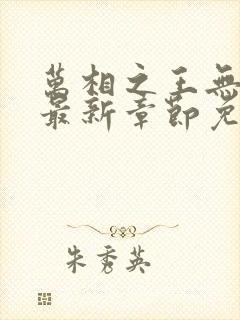 萬相之王無
最新章節免
朱秀英